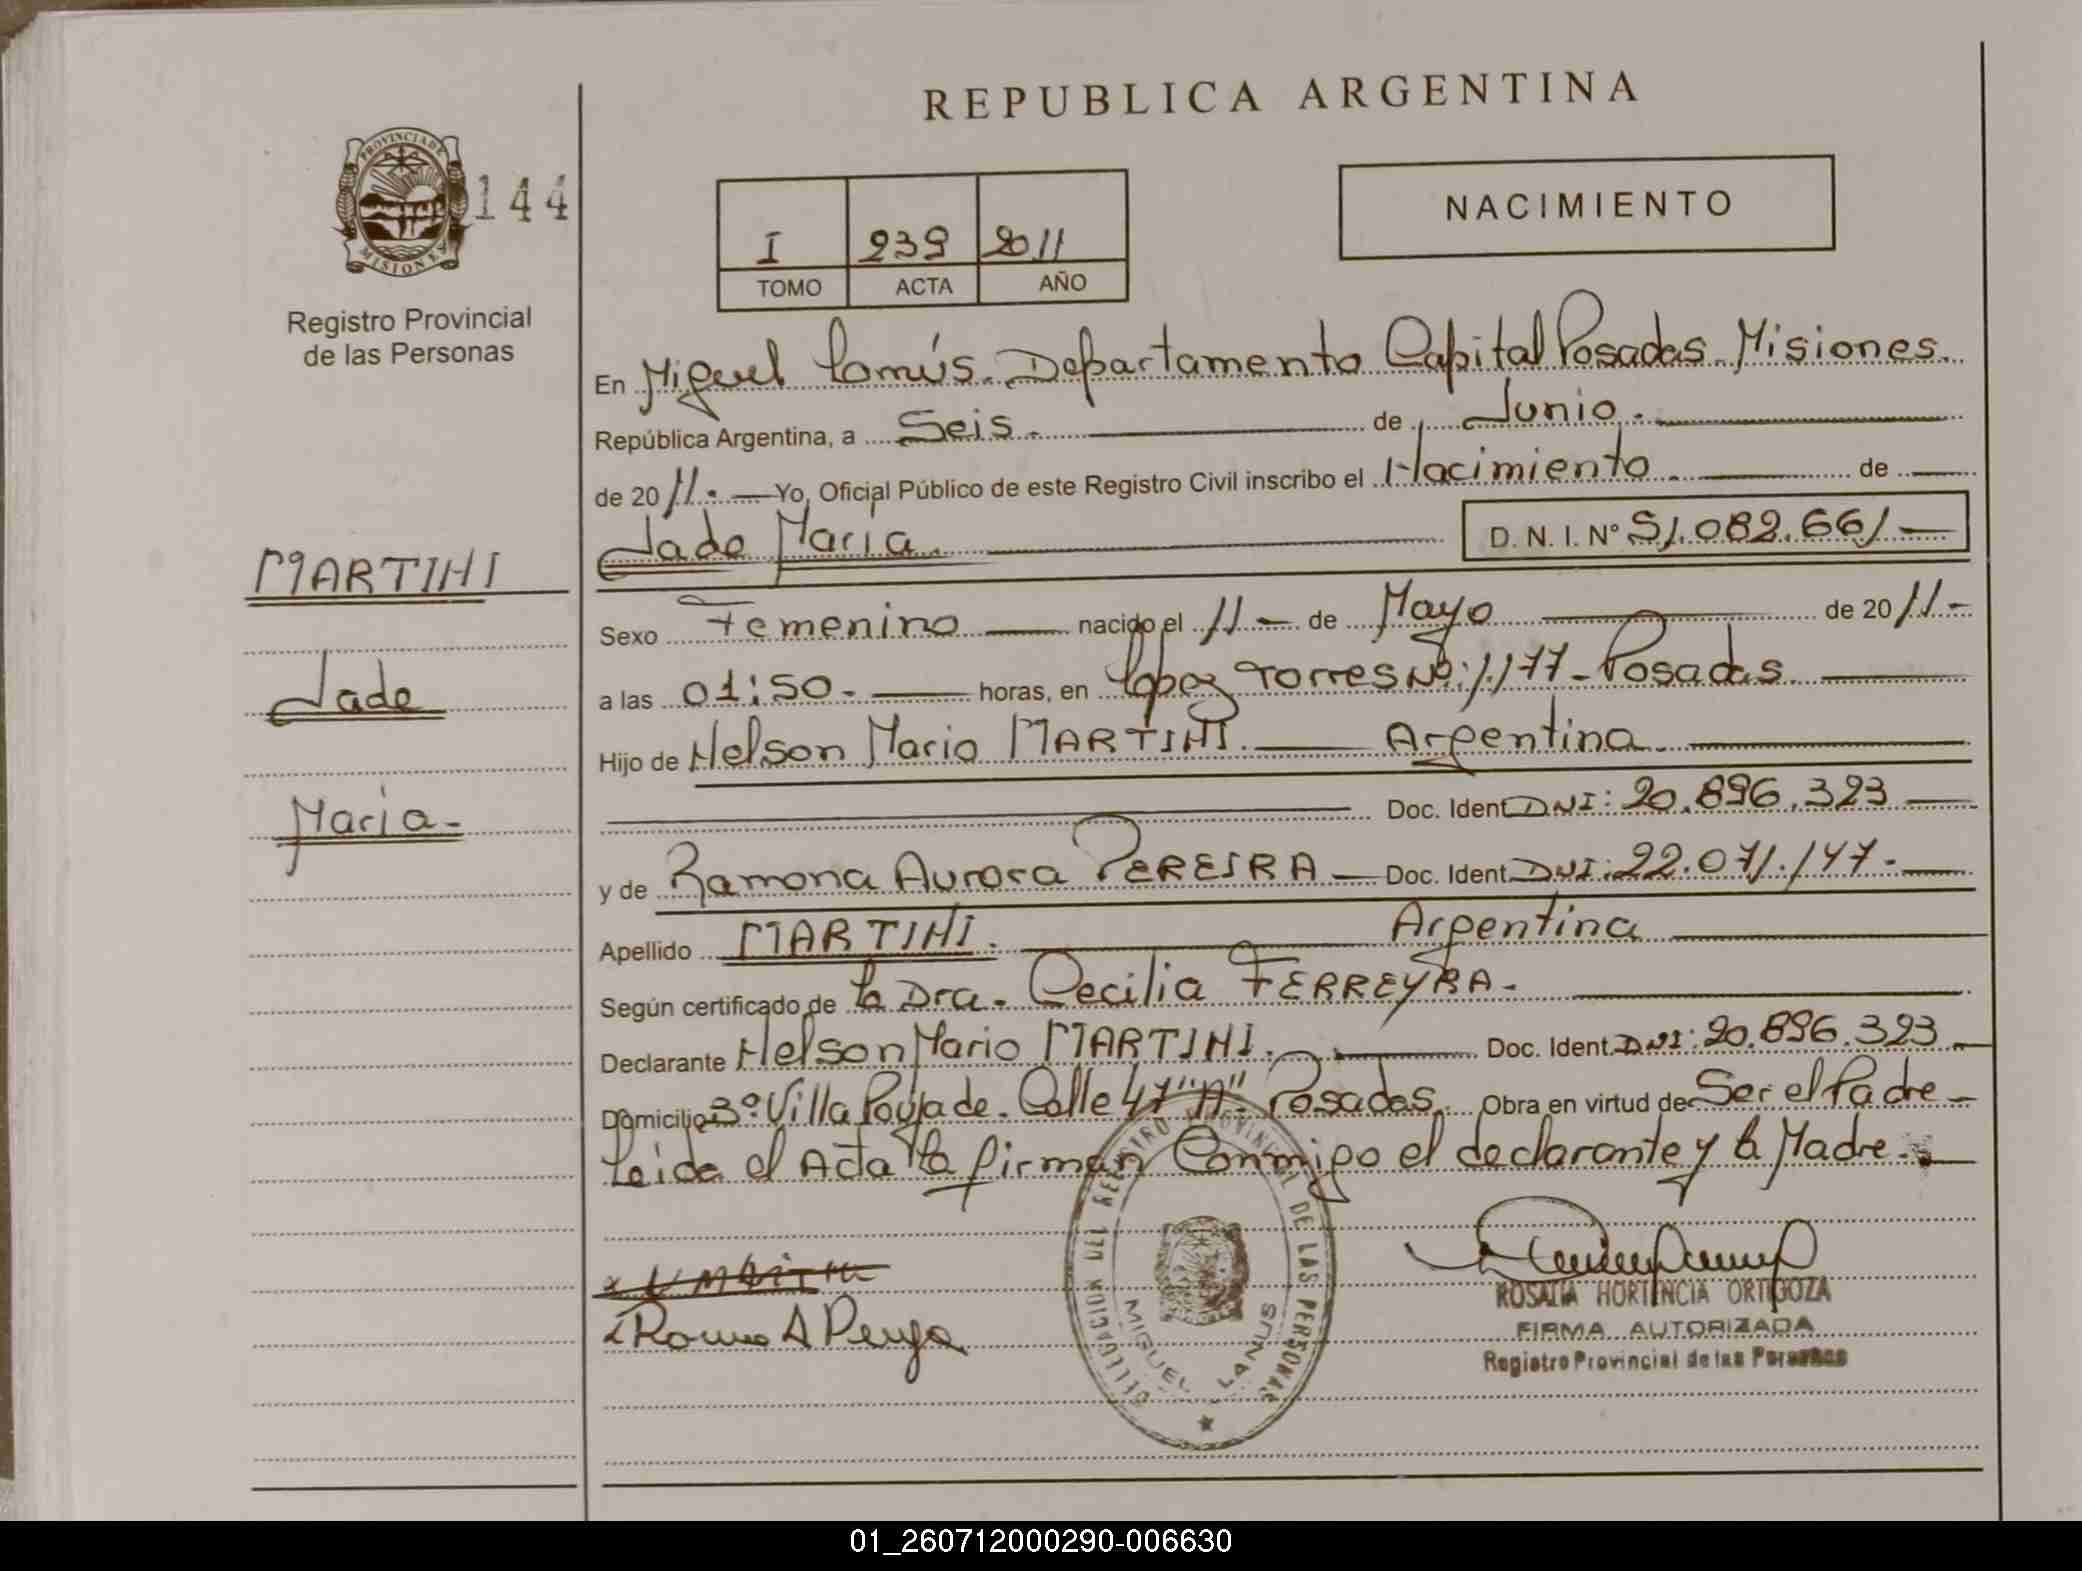 REPUBLICA ARGENTINA
PROVINCIA DE MISIONES
144
Registro Provincial
de las Personas
I 239 2011
TOMO ACTA AÑO
NACIMIENTO
En Miguel Lanús. Departamento Capital Posadas. Misiones.
República Argentina, a Seis. de Junio.
de 2011. Yo, Oficial Público de este Registro Civil inscribo el Nacimiento de
Jade Maria D. N. I. Nº 51.082.661
MARTINI
Jade
Maria.
Sexo Femenino nacido el 11 de Mayo de 2011.
a las 01:50. horas, en López Torres Nº: 1.177 - Posadas
Hijo de Nelson Mario MARTINI. Argentina.
Doc. Ident. DNI: 20.896.323
y de Ramona Aurora PEREIRA Doc. Ident. DNI: 22.071.147.
Apellido MARTINI. Argentina
Según certificado de la Dra. Cecilia FERREYRA.
Declarante Nelson Mario MARTINI. Doc. Ident. DNI: 20.896.323
Domicilio Bº Villa Poujade. Calle 47 "A". Posadas. Obra en virtud de Ser el Padre
Leida el Acta la firman Conmigo el declarante y la Madre.
REGISTRO PROVINCIAL DE LAS PERSONAS
DELEGACION
MIGUEL LANUS
ROSALIA HORTENCIA ORTIGOZA
FIRMA AUTORIZADA
Registro Provincial de las Personas
01_260712000290-006630